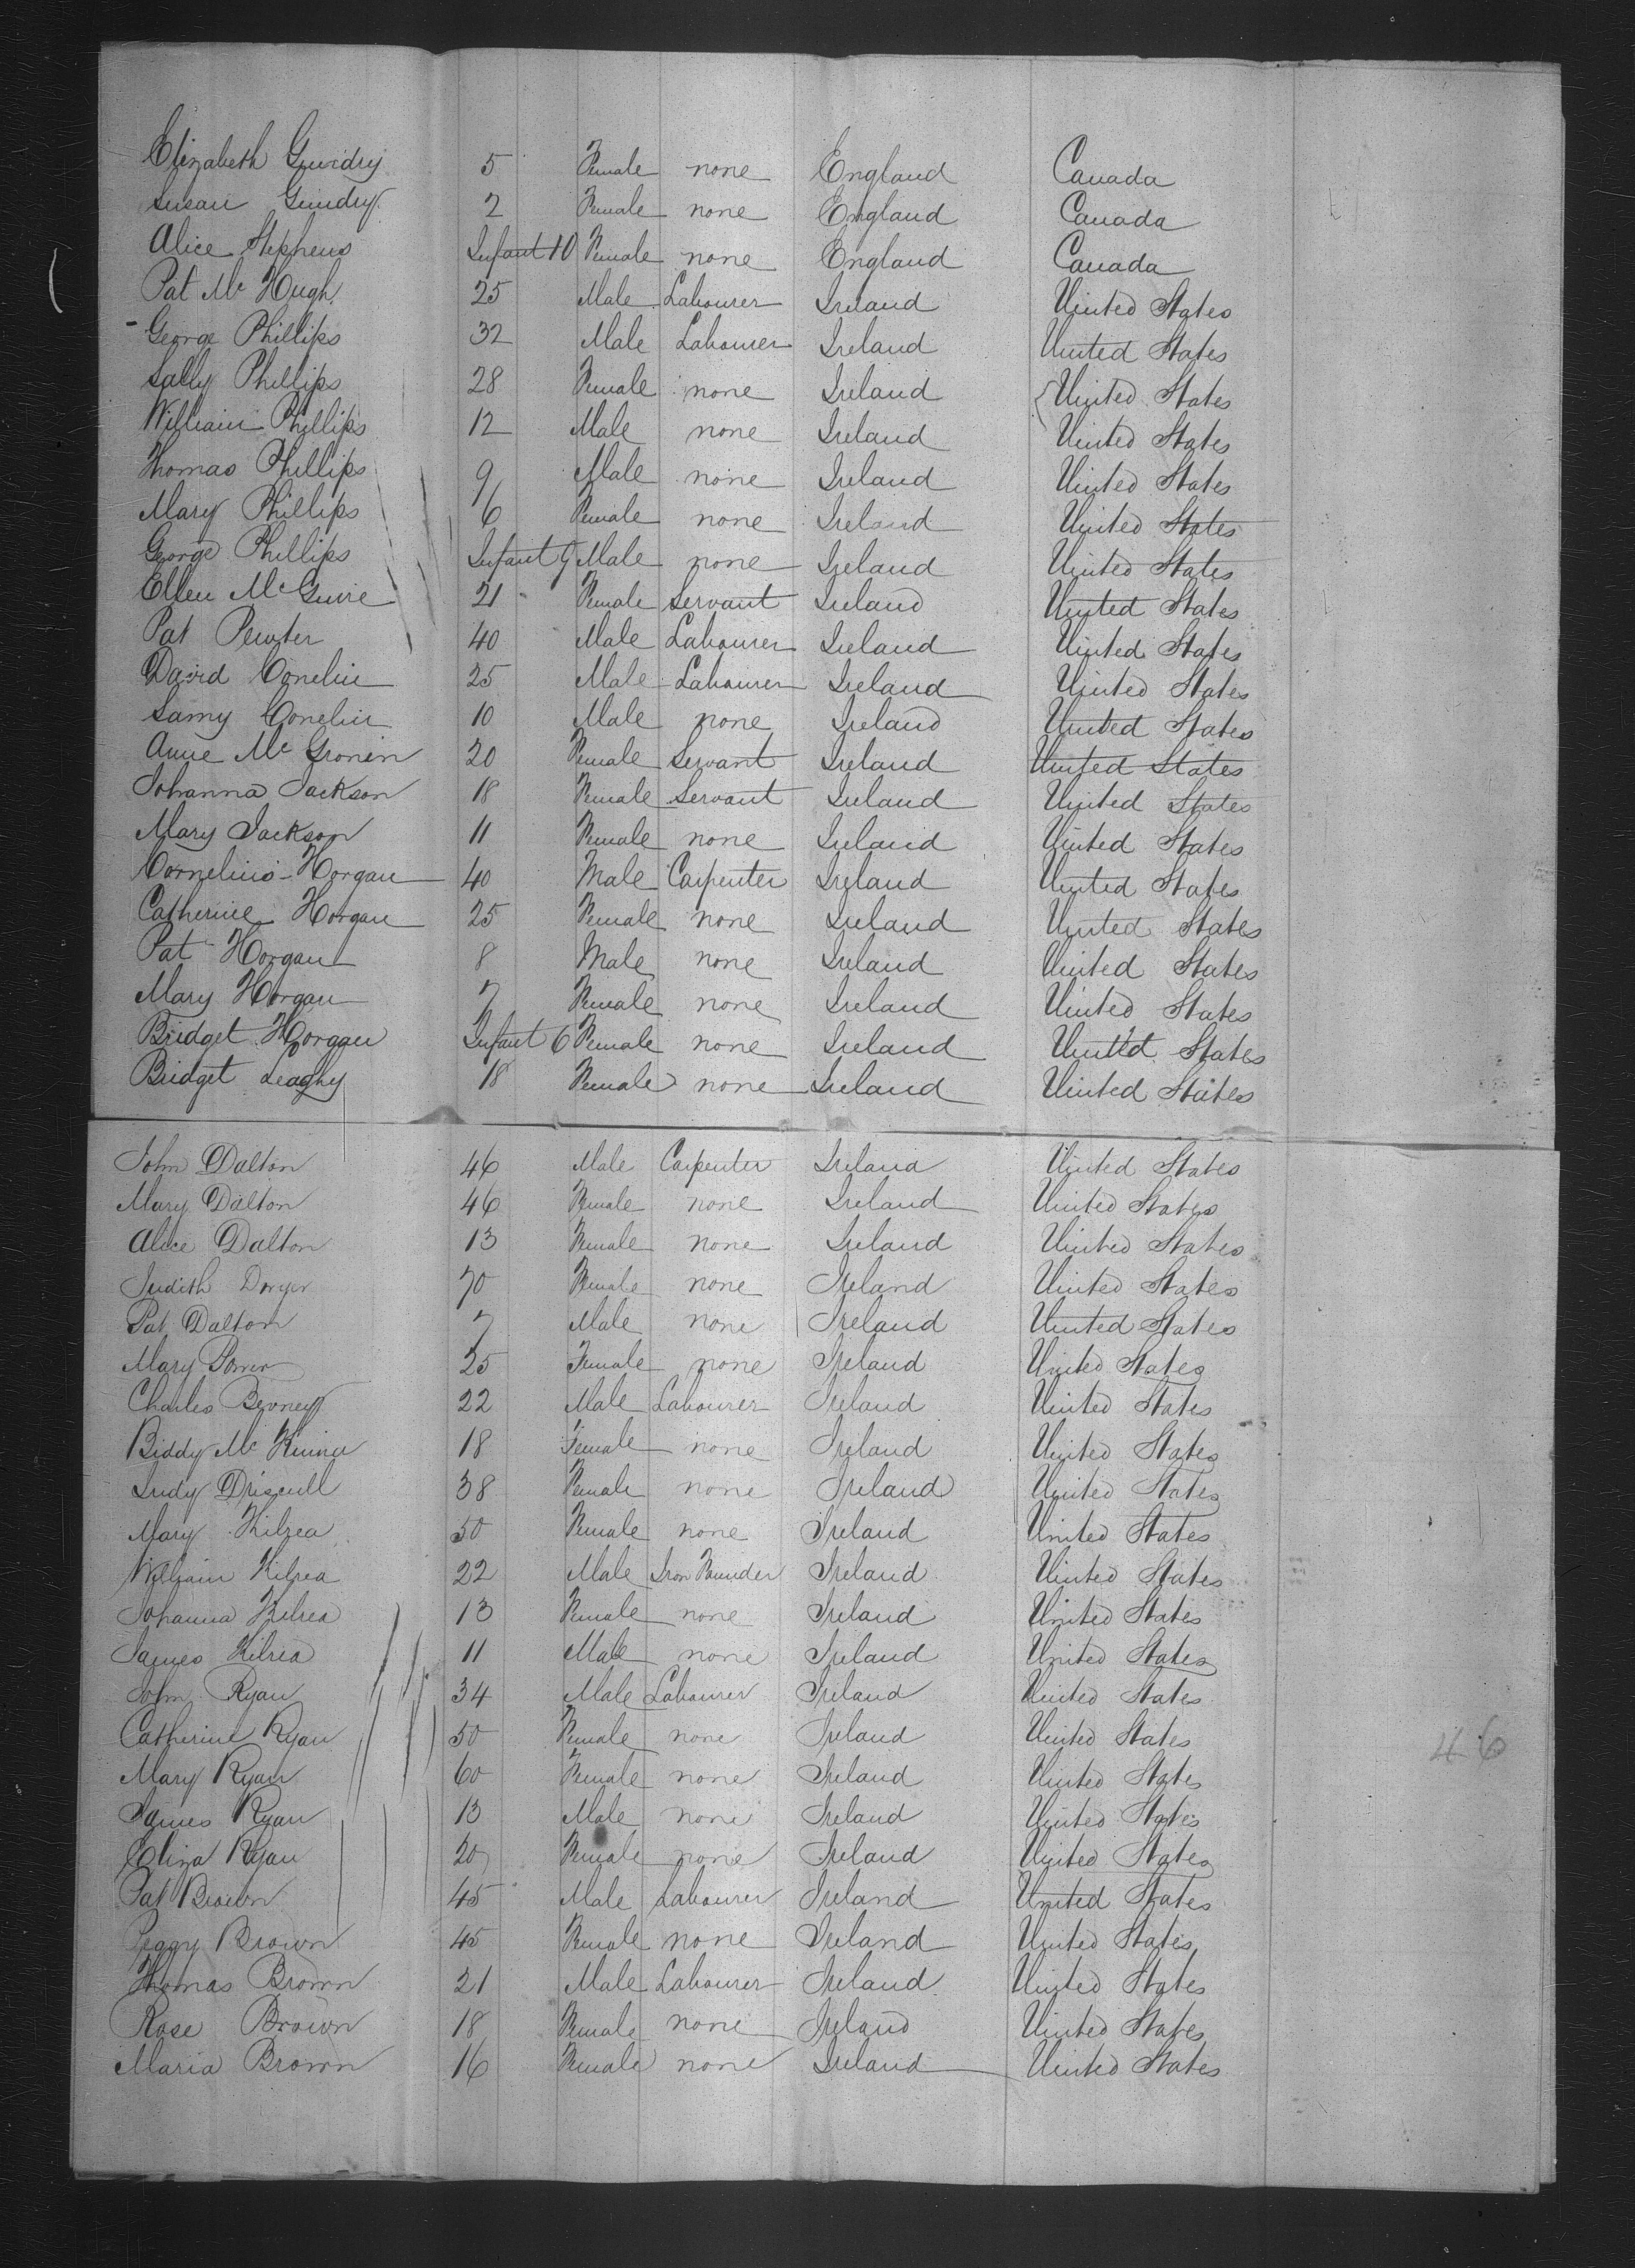 Elizabeth Guindry 5 Female none England Canada
Susan Guindry 2 Female none England Canada
Alice Stephens Infant 10 Female none England Canada
Pat Mc Hugh 25 Male Labourer Ireland United States
George Phillips 32 Male Labourer Ireland United States
Sally Phillips 28 Female none Ireland United States
William Phillips 12 Male none Ireland United States
Thomas Phillips 9 Male none Ireland United States
Mary Phillips 6 Female none Ireland United States
George Phillips Infant 9 Male none Ireland United States
Ellen Mc Guire 21 Female Servant Ireland United States
Pat Pewter 40 Male Labourer Ireland United States
David 25 Male Labourer Ireland United States
10 Male none Ireland United States
Anne Mc Gronin 20 Female Servant Ireland United States
Johanna Jackson 18 Female Servant Ireland United States
Mary Jackson 11 Female none Ireland United States
Cornelius Horgan 40 Male Carpenter Ireland United States
Catherine Horgan 25 Female none Ireland United States
Pat Horgan 8 Male none Ireland United States
Mary Horgan 7 Female none Ireland United States
Bridget Horgan Infant 6 Female none Ireland United States
Bridget Leaghy 18 Female none Ireland United States
John Dalton 46 Male Carpenter Ireland United States
Mary Dalton 46 Female none Ireland United States
Alice Dalton 13 Female none Ireland United States
Judith Dwyer 70 Female none Ireland United States
Pat Dalton 7 Male none Ireland United States
Mary Power 25 Female none Ireland United States
Charles 22 Male Labourer Ireland United States
Biddy Mc 18 Female none Ireland United States
Judy Driscull 38 Female none Ireland United States
Mary Kilrea 50 Female none Ireland United States
William Kilrea 22 Male Iron Founder Ireland United States
Johanna Kilrea 13 Female none Ireland United States
James Kilrea 11 Male none Ireland United States
John Ryan 34 Male Labourer Ireland United States
Catherine Ryan 50 Female none Ireland United States
46
Mary Ryan 60 Female none Ireland United States
James Ryan 13 Male none Ireland United States
Eliza Ryan 20 Female none Ireland United States
Pat Brown 45 Male Labourer Ireland United States
Peggy Brown 45 Female none Ireland United States
Thomas Brown 21 Male Labourer Ireland United States
Rose Brown 18 Female none Ireland United States
Maria Brown 16 Female none Ireland United States